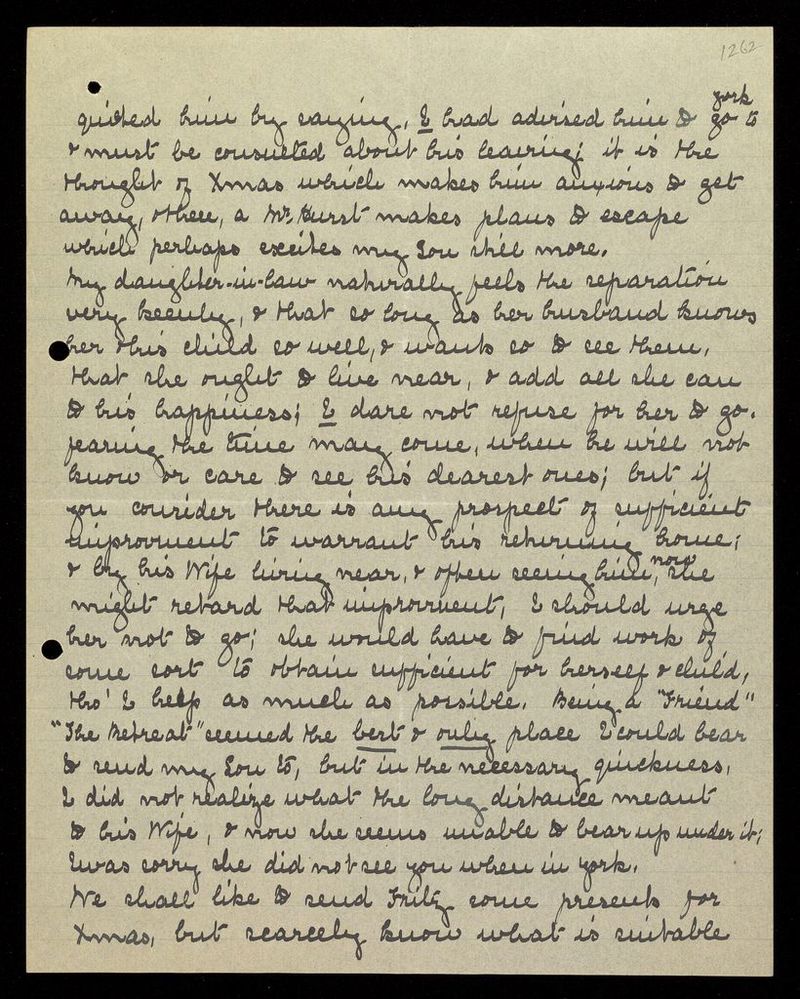 1262
york
quieted him by saying, I had advised him to go to
& must be consulted about his leaving; it is the
thought of Xmas which makes him anxious to get
away, then, a Mr. Hurst makes plans to escape
which perhaps excites my Son still more.
My daughter-in-law naturally feels the separation
very keenly, & that so long as her husband knows
her & his child so well, & wants so to see them,
that she ought to live near, & add all she can
to his happiness; I dare not refuse for her to go.
fearing the time may come, when he will not
know or care to see his dearest ones; but if
you consider there is any prospect of sufficient
improvment to warrant his returning home;
& by his Wife living near, & often seeing him, now she
might retard that improvment, I should urge
her not to go; she would have to find work of
some sort to obtain sufficient for herself & child,
tho' I help as much as possible. Being a "Friend"
"The Retreat" seemed the best & only place I could bear
to send my Son to, but in the necessary quickness,
I did not realize what the long distance meant
to his Wife, & now she seems unable to bear up under it;
I was sorry she did not see you when in york.
We shall like to send Fritz some presents for
Xmas, but scarcely know what is suitable